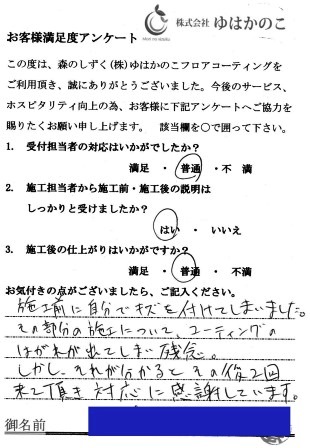 株式会社 ゆはかのこ
お客様満足度アンケート
この度は、森のしずく(株)ゆはかのこフロアコーティングを
ご利用頂き、誠にありがとうございました。今後のサービス、
ホスピタリティ向上の為、お客様に下記アンケートへご協力を
賜りたくお願い申し上げます。 該当欄を○で囲って下さい。
1. 受付担当者の対応はいかがでしたか?
満足 ・ 普通 ・不 満
2. 施工担当者から施工前・施工後の説明は
しっかりと受けましたか?
はい ・ いいえ
3. 施工後の仕上がりはいかがですか?
満足 ・ 普通 ・ 不満
お気付きの点がございましたら、ご記入ください。
施工前に自分でキズを付けてしまいました。
その部分の施工について、コーティングの
はがれが出てしまい残念。
しかし、それが分かるとその後2回
来て頂き対応に感謝しています。
御名前